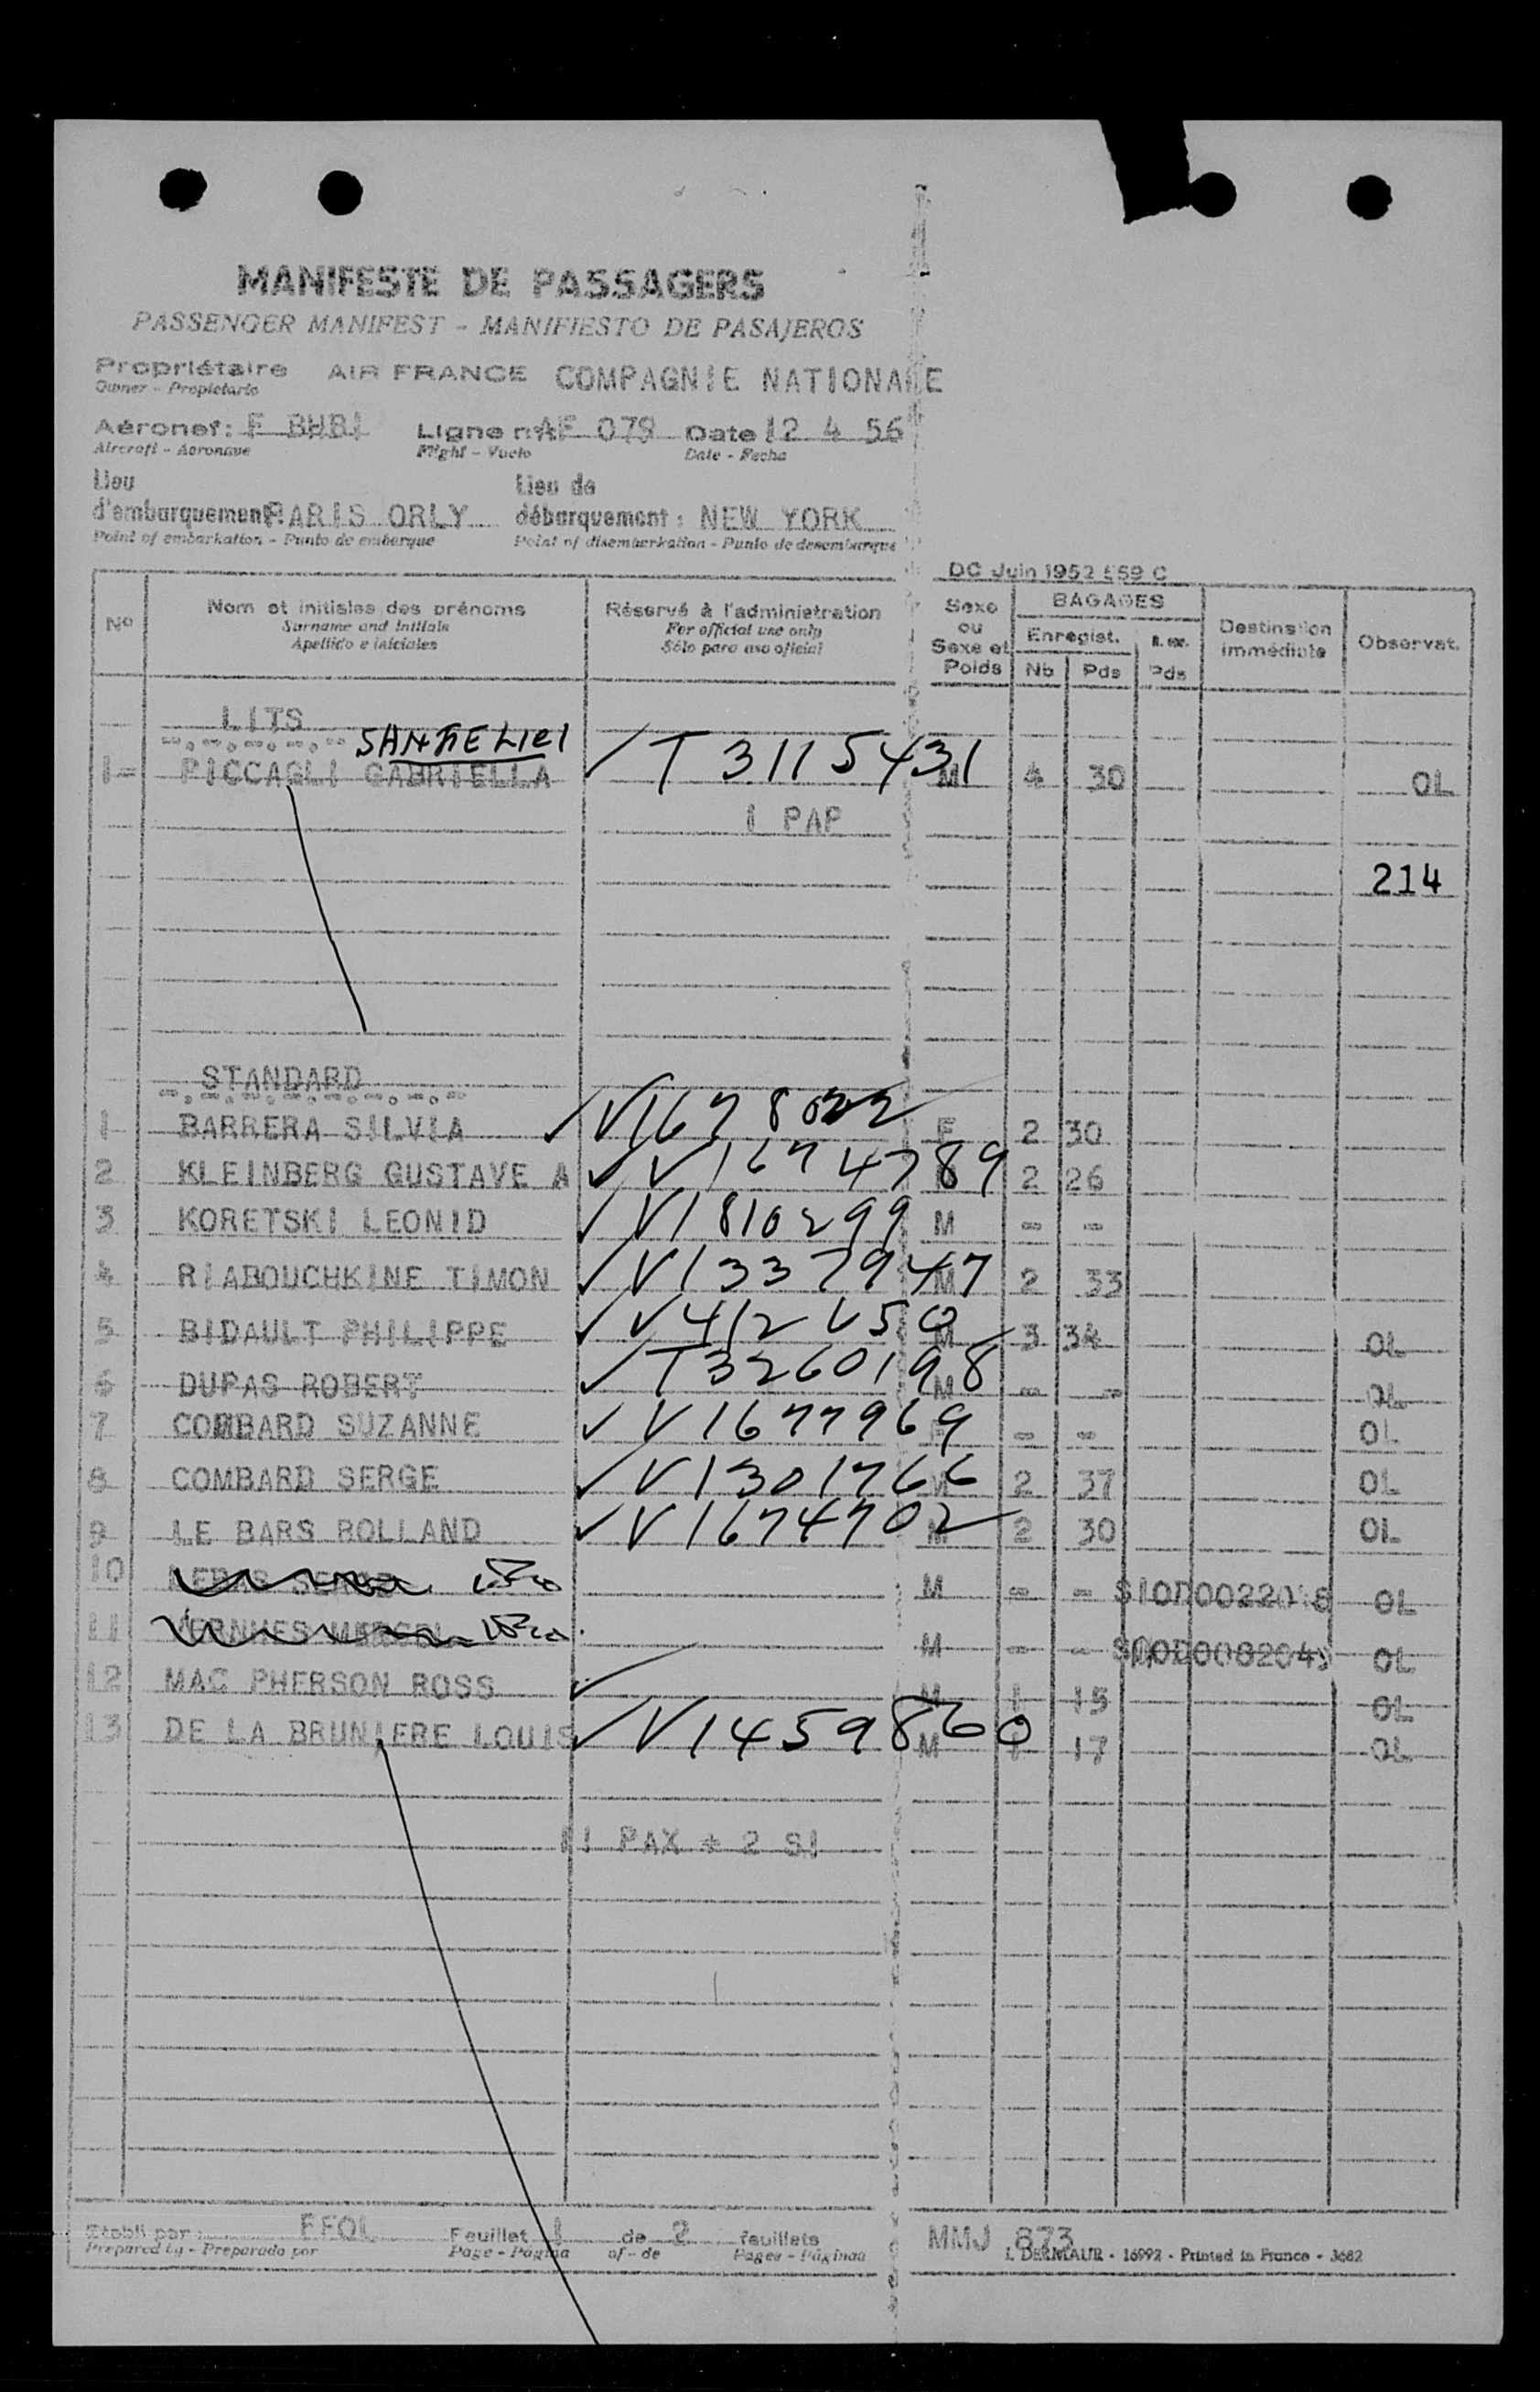 MANIFESTE DE PASSAGERS
PASSENGER MANIFEST - MANIFIESTO DE PASAJEROS
Propriétaire AIR FRANCE COMPAGNIE NATIONALE
Owner - Propietario
Aéronef: F BHBI Ligne n° AF 079 Date 12 4 56
Aircraft - Aeronave Flight - Vuelo Date - Fecha
Lieu Lieu de
d'embarquement: PARIS ORLY débarquement: NEW YORK
Point of embarkation - Punto de embarque Point of disembarkation - Punto de desembarque
DC Juin 1952 559 C
N° Nom et initiales des prénoms Réservé à l'administration Sexe ou Sexe et Poids BAGAGES Destination immédiate Observat.
Surname and initials For official use only Enregist.
Apellido e iniciales Sólo para uso oficial Nb Pds Pds
LITS
1 PICCAGLI GABRIELLA ✓ T 3115431 M 4 30 OL
1 PAP
214
STANDARD
1 BARRERA SILVIA ✓ V1678022 F 2 30
2 KLEINBERG GUSTAVE A ✓ V1674789 2 26
3 KORETSKI LEONID ✓ V1810299 M - -
4 RIABOUCHKINE TIMON ✓ V1337947 M 2 33
5 BIDAULT PHILIPPE ✓ M 3 34 OL
6 DUPAS ROBERT ✓ T3260198 M - - OL
7 COMBARD SUZANNE ✓ V1677969 F - - OL
8 COMBARD SERGE ✓ V1301766 M 2 37 OL
9 LE BARS ROLLAND ✓ V1674702 M 2 30 OL
10 M - - OL
11 M - - OL
12 MAC PHERSON ROSS ✓ M 1 15 OL
13 DE LA BRUNIERE LOUIS ✓ V1459860 M 1 17 OL
11 PAX + 2 SI
Etabli par: FFOL Feuillet 1 de 2 feuillets MMJ 873
Prepared by - Preparado por Page - Página of - de Pages - Páginas
I. DERMAUR - 16992 - Printed in France - 3682